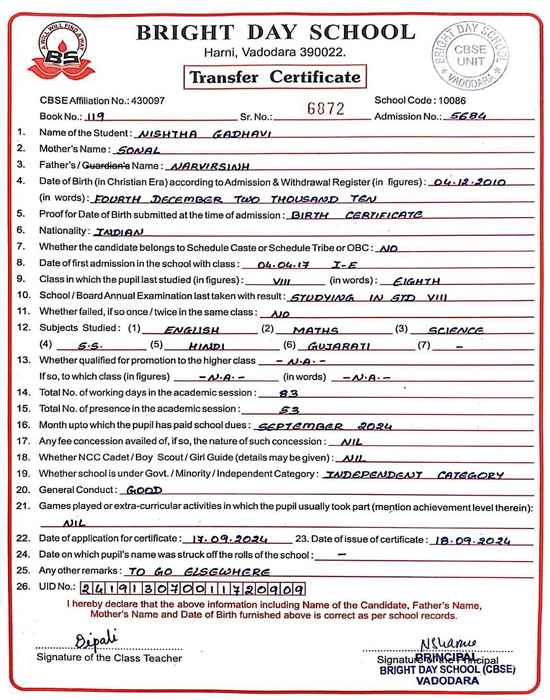 A WILL WILL FIND A WAY
BS
BRIGHT DAY SCHOOL
Harni, Vadodara 390022.
Transfer Certificate
BRIGHT DAY SCHOOL
CBSE
UNIT
VADODARA
CBSE Affiliation No.: 430097 School Code : 10086
Book No.: 119 Sr. No.: 6872 Admission No.: 5684
1. Name of the Student : NISHTHA GADHAVI
2. Mother's Name : SONAL
3. Father's / Guardian's Name : NARVIRSINH
4. Date of Birth (in Christian Era) according to Admission & Withdrawal Register (in figures) : 04-12-2010
(in words) : FOURTH DECEMBER TWO THOUSAND TEN
5. Proof for Date of Birth submitted at the time of admission : BIRTH CERTIFICATE
6. Nationality : INDIAN
7. Whether the candidate belongs to Schedule Caste or Schedule Tribe or OBC : NO
8. Date of first admission in the school with class : 04.04.17 I-E
9. Class in which the pupil last studied (in figures) : VIII (in words) : EIGHTH
10. School / Board Annual Examination last taken with result : STUDYING IN STD VIII
11. Whether failed, if so once / twice in the same class : NO
12. Subjects Studied : (1) ENGLISH (2) MATHS (3) SCIENCE
(4) S.S. (5) HINDI (6) GUJARATI (7) -
13. Whether qualified for promotion to the higher class - N.A. -
If so, to which class (in figures) - N.A. - (in words) - N.A. -
14. Total No. of working days in the academic session : 83
15. Total No. of presence in the academic session : 53
16. Month upto which the pupil has paid school dues : SEPTEMBER 2024
17. Any fee concession availed of, if so, the nature of such concession : NIL
18. Whether NCC Cadet / Boy Scout / Girl Guide (details may be given) : NIL
19. Whether school is under Govt. / Minority / Independent Category : INDEPENDENT CATEGORY
20. General Conduct : GOOD
21. Games played or extra-curricular activities in which the pupil usually took part (mention achievement level therein) :
NIL
22. Date of application for certificate : 17.09.2024 23. Date of issue of certificate : 18.09.2024
24. Date on which pupil's name was struck off the rolls of the school : -
25. Any other remarks : TO GO ELSEWHERE
26. UID No.: 241913070011720909
I hereby declare that the above information including Name of the Candidate, Father's Name,
Mother's Name and Date of Birth furnished above is correct as per school records.
Dipali
Signature of the Class Teacher
Signature of the Principal
PRINCIPAL
BRIGHT DAY SCHOOL (CBSE)
VADODARA